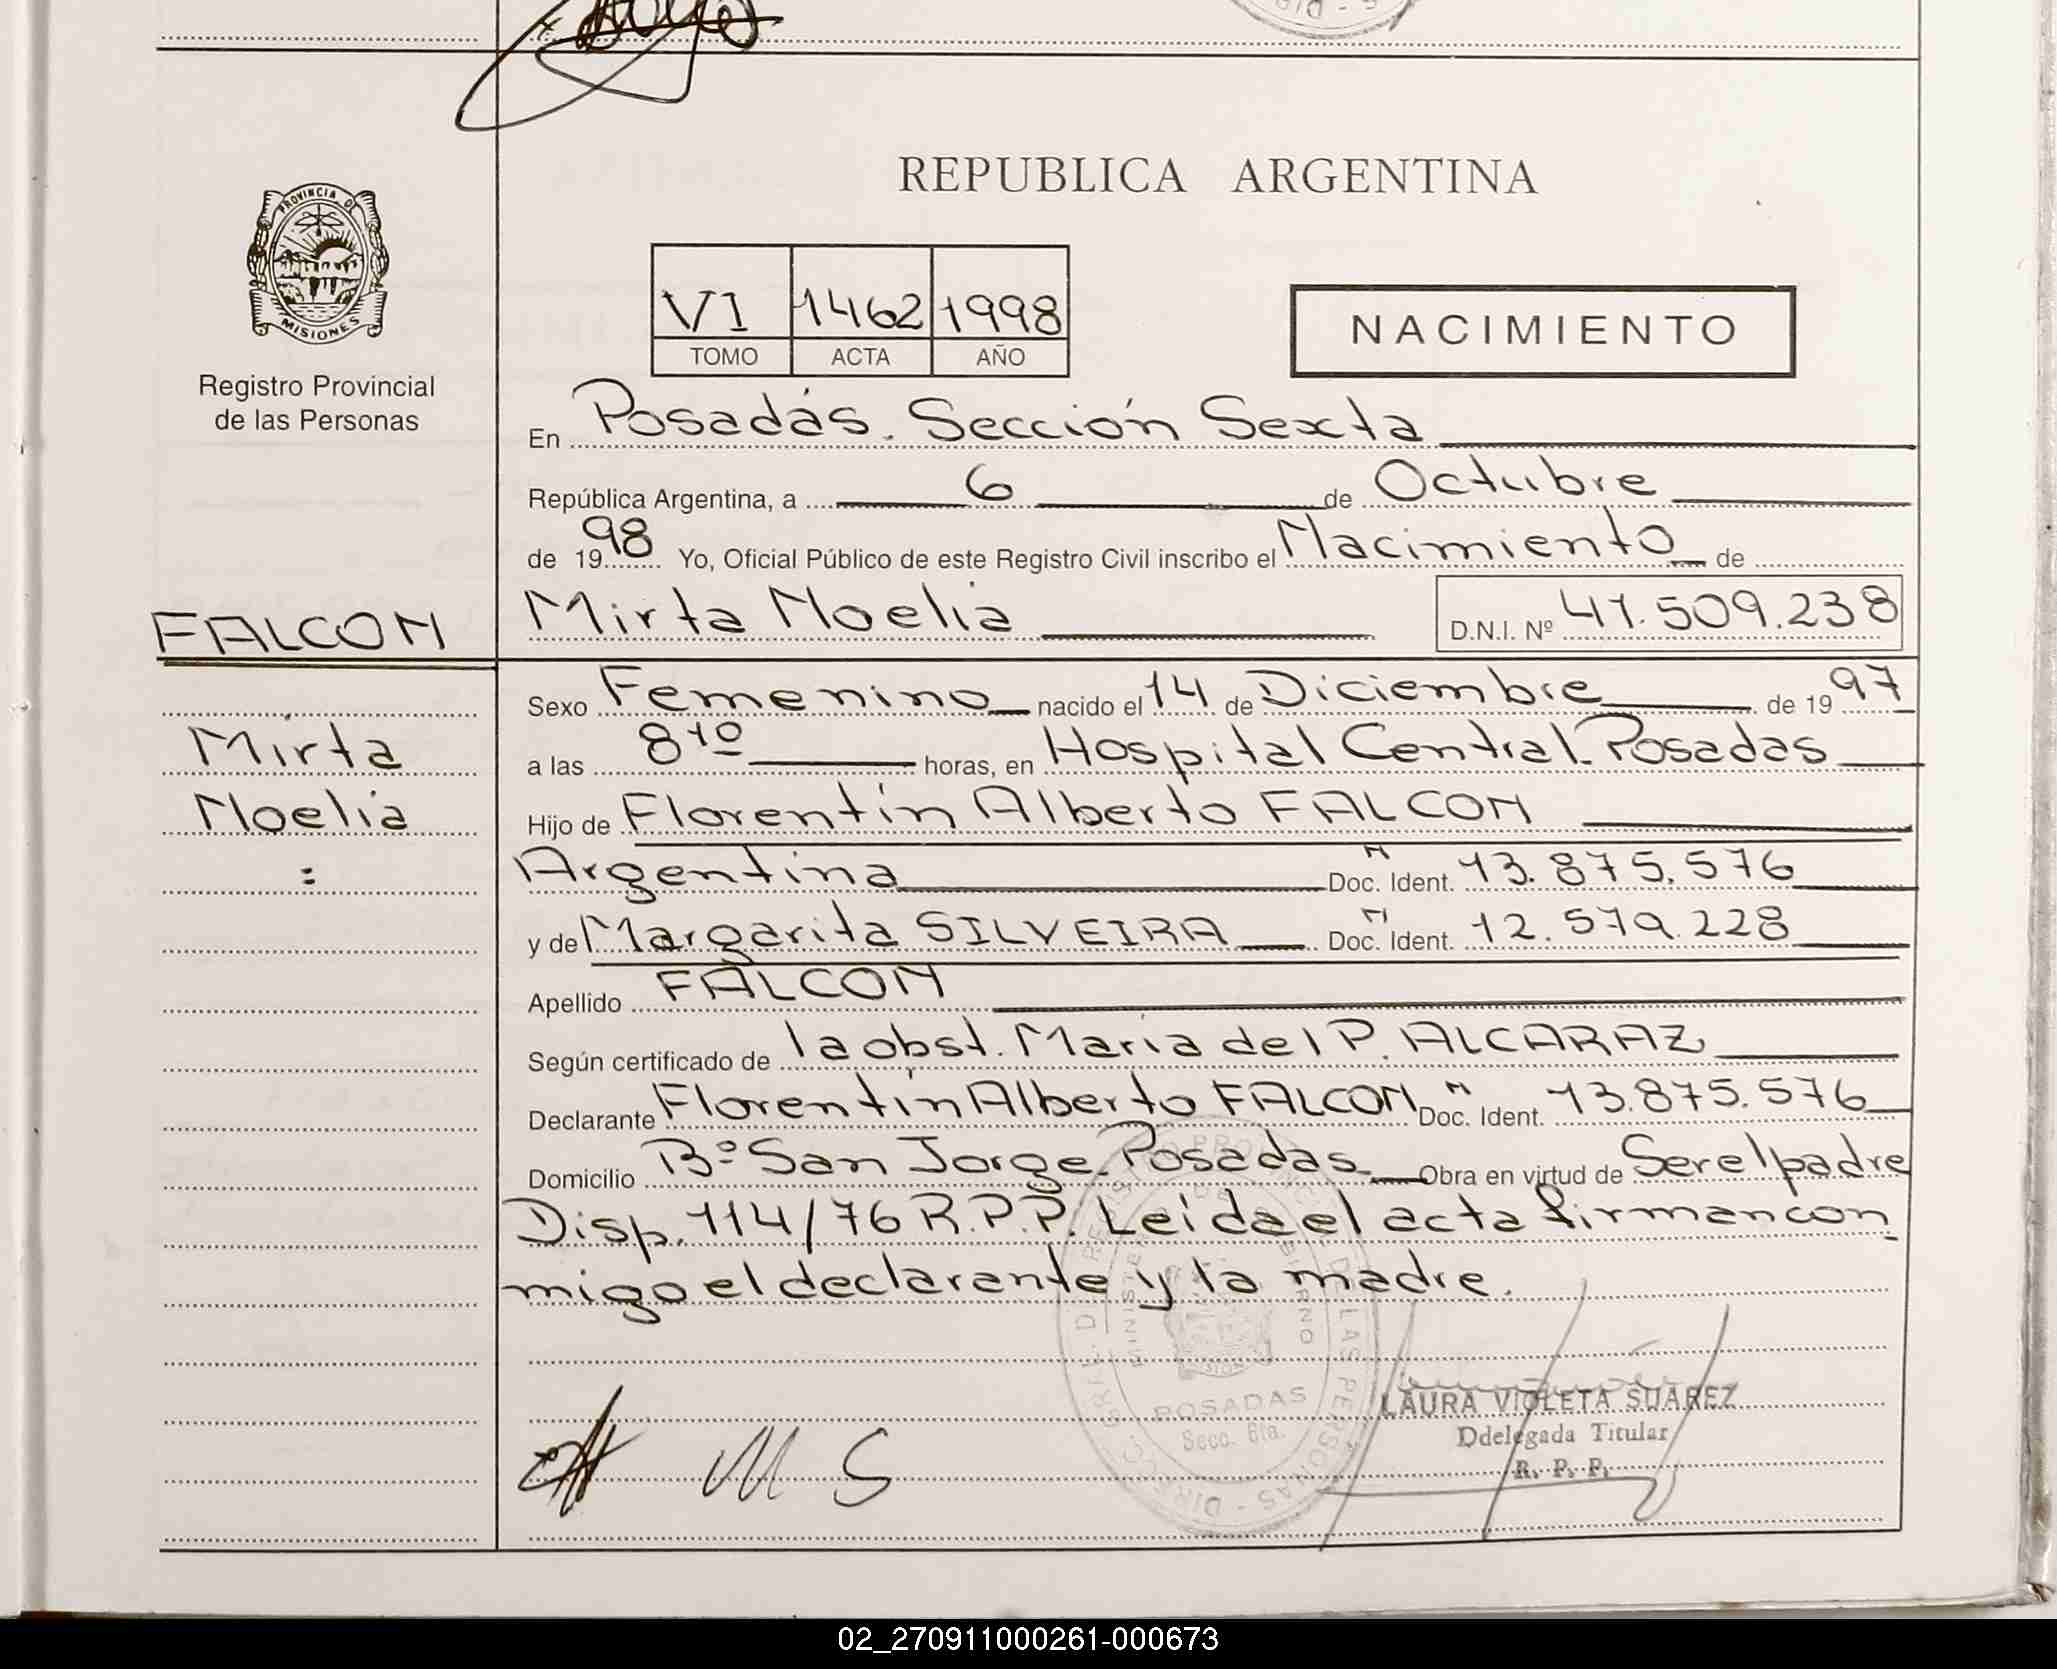 REPUBLICA ARGENTINA
PROVINCIA DE
MISIONES
Registro Provincial
de las Personas
VI 1462 1998
TOMO ACTA AÑO
NACIMIENTO
En Posadas. Sección Sexta
República Argentina, a 6 de Octubre
de 1998 Yo, Oficial Público de este Registro Civil inscribo el Nacimiento de
FALCON
Mirta Noelia D.N.I. Nº 41.509.238
Mirta
Noelia
:
Sexo Femenino nacido el 14 de Diciembre de 1997
a las 8 10 horas, en Hospital Central. Posadas
Hijo de Florentín Alberto FALCON
Argentina Doc. N Ident. 13.875.576
y de Margarita SILVEIRA Doc. N Ident. 12.579.228
Apellido FALCON
Según certificado de la obst. María del P. ALCARAZ
Declarante Florentín Alberto FALCON Doc. N Ident. 13.875.576
Domicilio Bº San Jorge. Posadas Obra en virtud de Ser el padre
Disp. 114/76 R.P.P. Leída el acta firman con
migo el declarante y la madre.
POSADAS
Secc. 6ta.
M S
LAURA VIOLETA SUAREZ
Ddelegada Titular
R. P. P.
02_270911000261-000673